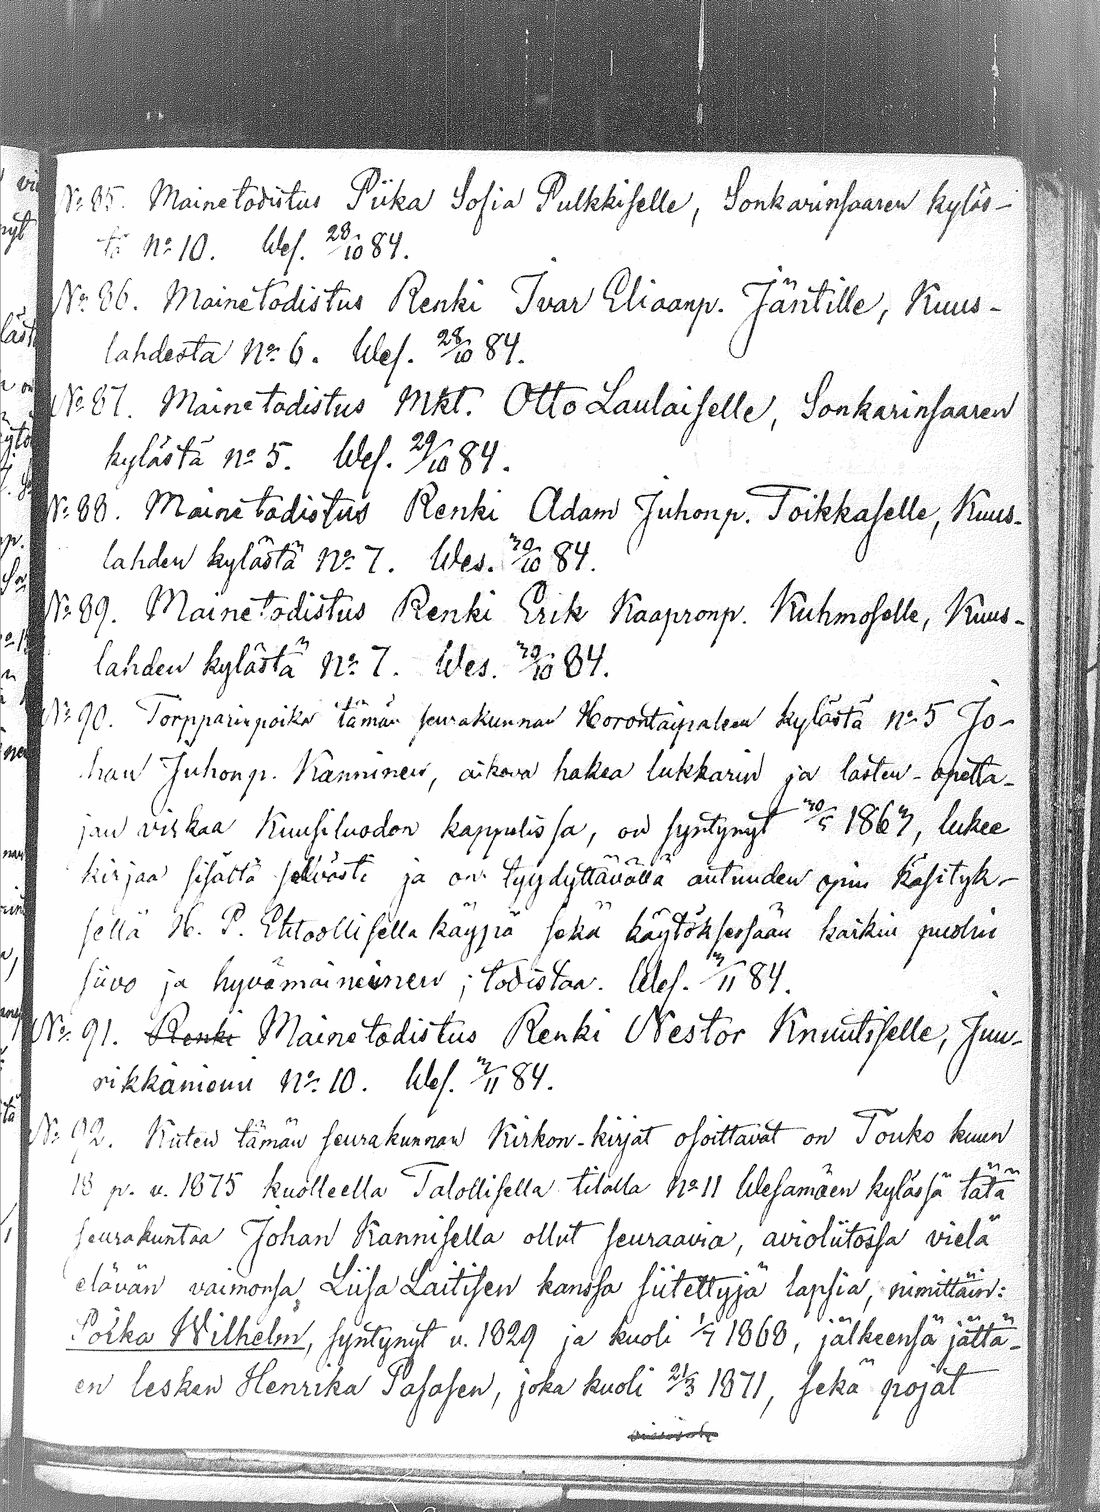 № 85. Mainetodistus Piika Sofia Pulkkiselle, Sonkarinsaaren kyläs-
tä no 10. Wes. 28/10 84.
№ 86. Mainetodistus Renki Ivar Eliaanp. Jäntille, Kuus-
lahdesta no 6. Wes. 28/10 84.
№ 87. Mainetodistus Mkt. Otto Laulaiselle, Sonkarinsaaren
kylästä no 5. Wes. 29/10 84.
№ 88. Mainetodistus Renki Adam Juhonp. Toikkaselle, Kuus-
lahden kylästä no 7. Wes. 30/10 84.
№ 89. Mainetodistus Renki Erik Kaapronp. Kuhmoselle, Kuus-
lahden kylästä no 7. Wes. 30/10 84.
№ 90. Torpparinpoika tämän seurakunnan Horontaipaleen kylästä no 5 Jo-
han Juhonp. Kanninen, aikova hakea lukkarin ja lasten-opetta-
jan virkaa Kuusiluodon kappelissa, on syntynyt 30/5 1863, lukee
kirjaa sisältä selvästi ja on tyydyttävällä autuuden opin käsityk-
sellä H. P. Ehtoollisella käypä sekä käytöksessään kaikin puolin
siivo ja hyvämaineinen; todistaa. Wes. 3/11 84.
№ 91. Renki Mainetodistus Renki Nestor Knuutiselle, Juu-
rikkaniemi no 10. Wes. 3/11 84.
№ 92. Kuten tämän seurakunnan Kirkon-kirjat osoittavat on Touko kuun
18 p. v. 1875 kuolleella Talollisella tilalla no 11 Wesamäen kylässä tätä
seurakuntaa Johan Kannisella ollut seuraavia, avioliitossa vielä
elävän vaimonsa Liisa Laitisen kanssa siitettyjä lapsia, nimittäin:
Poika Wilhelm, syntynyt v. 1829 ja kuoli 1/7 1868, jälkeensä jättä-
en lesken Henrika Pasasen, joka kuoli 21/3 1871, sekä pojat